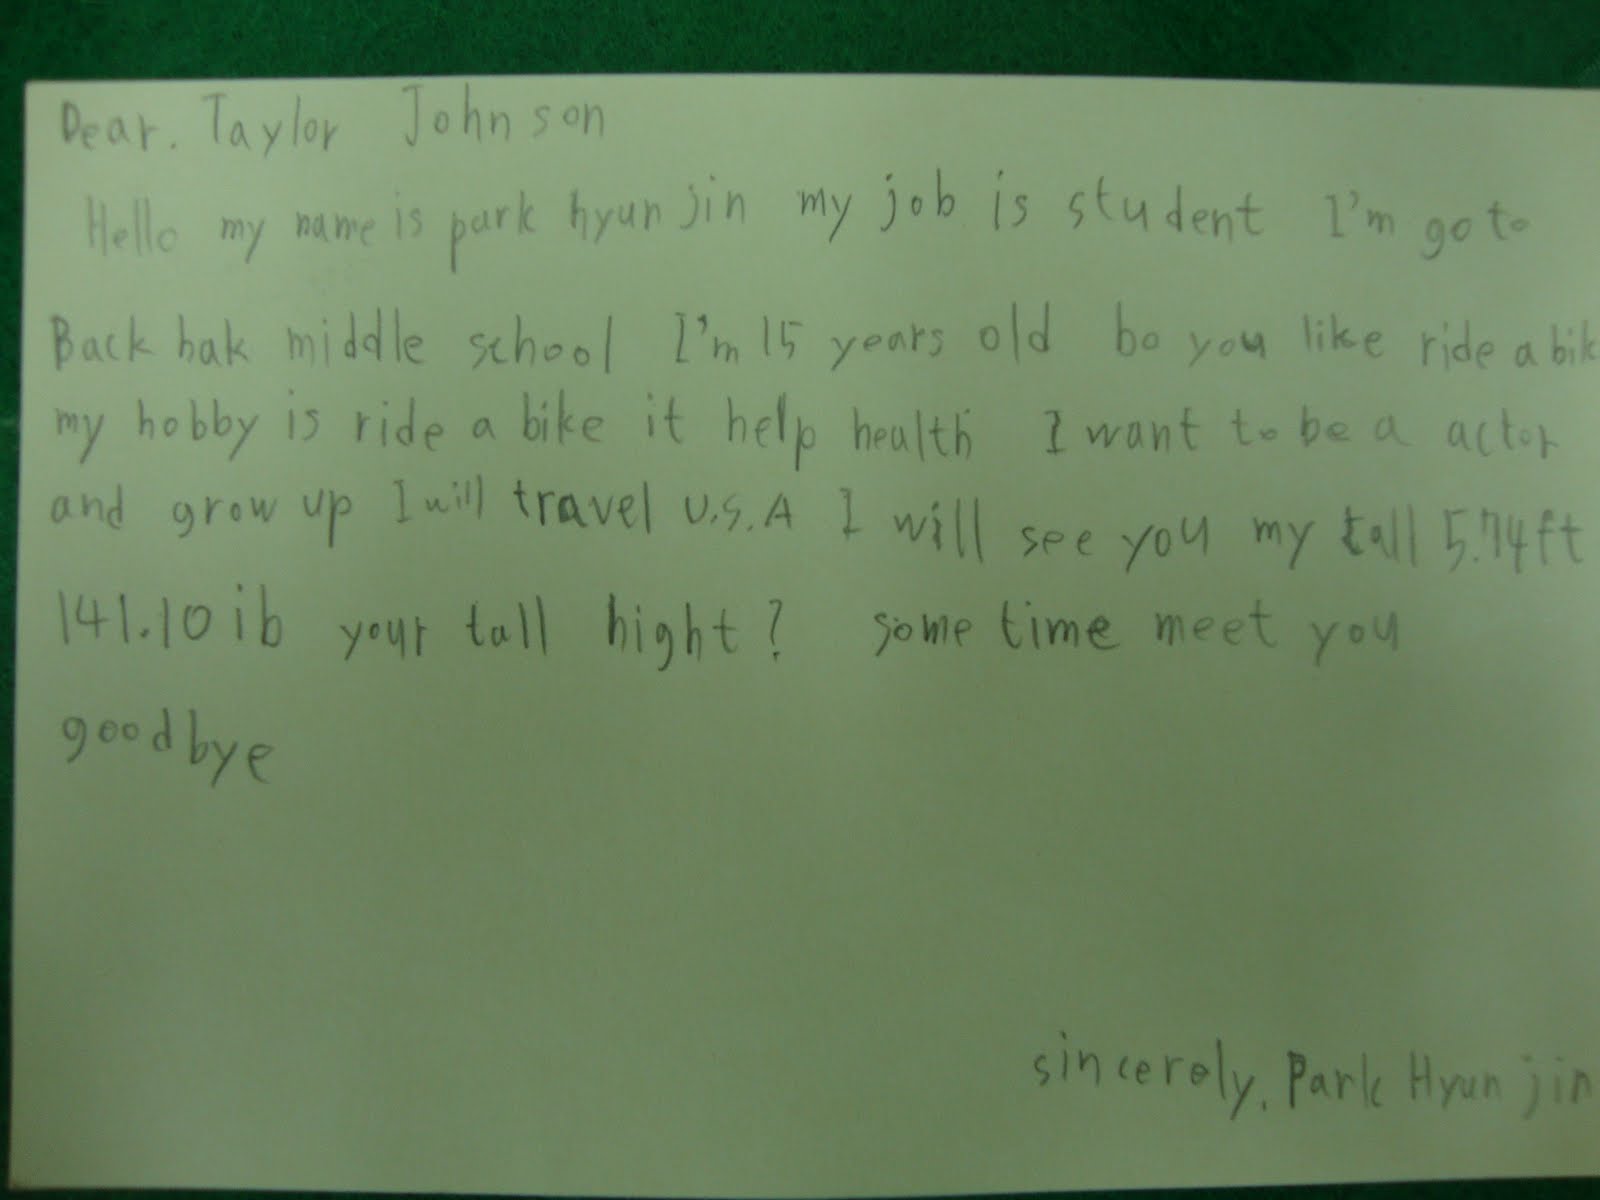 Dear. Taylor Johnson
Hello my name is park hyun jin my job is student I'm go to
Back hak middle school I'm 15 years old bo you like ride a bik
my hobby is ride a bike it help health I want to be a actor
and grow up I will travel U.S.A I will see you my tall 5.74ft
141.10 ib your tall hight? some time meet you
goodbye
sincerely. Park Hyun jin